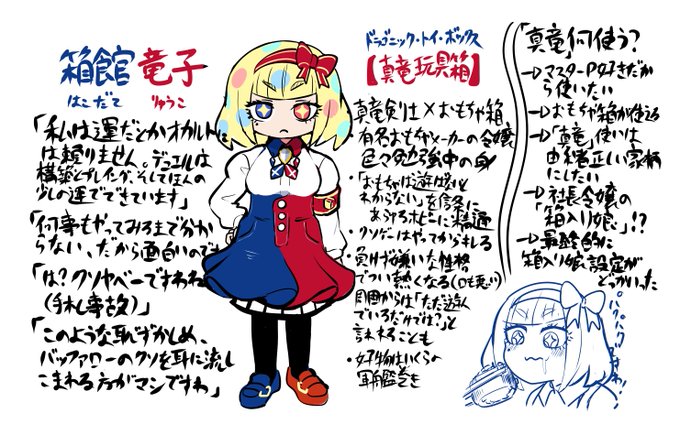 箱館 竜子
はこだて りゅうこ
「私は運だとかオカルト
には頼りません。デュエルは
構築とプレイング、そしてほんの
少しの運でできています」
「何事もやってみるまで分か
らない、だから面白いのです」
「は?クソヤベーですわね
(手札事故)」
「このような恥ずかしめ、
バッファローのクソを耳に流し
こまれる方がマシですわ」
ドラゴニック・トイ・ボックス
【真竜玩具箱】
真竜剣士×おもちゃ箱
・有名おもちゃメーカーの令嬢
色々勉強中の身
・「おもちゃは遊ばないと
わからない」を信条に
あらゆるホビーに精通
・クソゲーはやってからキレる
・負けず嫌いな性格
でつい熱くなる(口も悪い)
周囲からは「ただ遊ん
でいるだけでは?」と
言われることも
・好物はいくらの
軍艦巻き
「真竜」何使う?
→マスターP好きだか
ら使いたい
→おもちゃ箱が使える
→「真竜」使いは
由緒正しい家柄
にしたい
→社長令嬢の
「箱入り娘」!?
→最終的に
箱入り娘設定が
どっかいった
パクパク
ですわ!